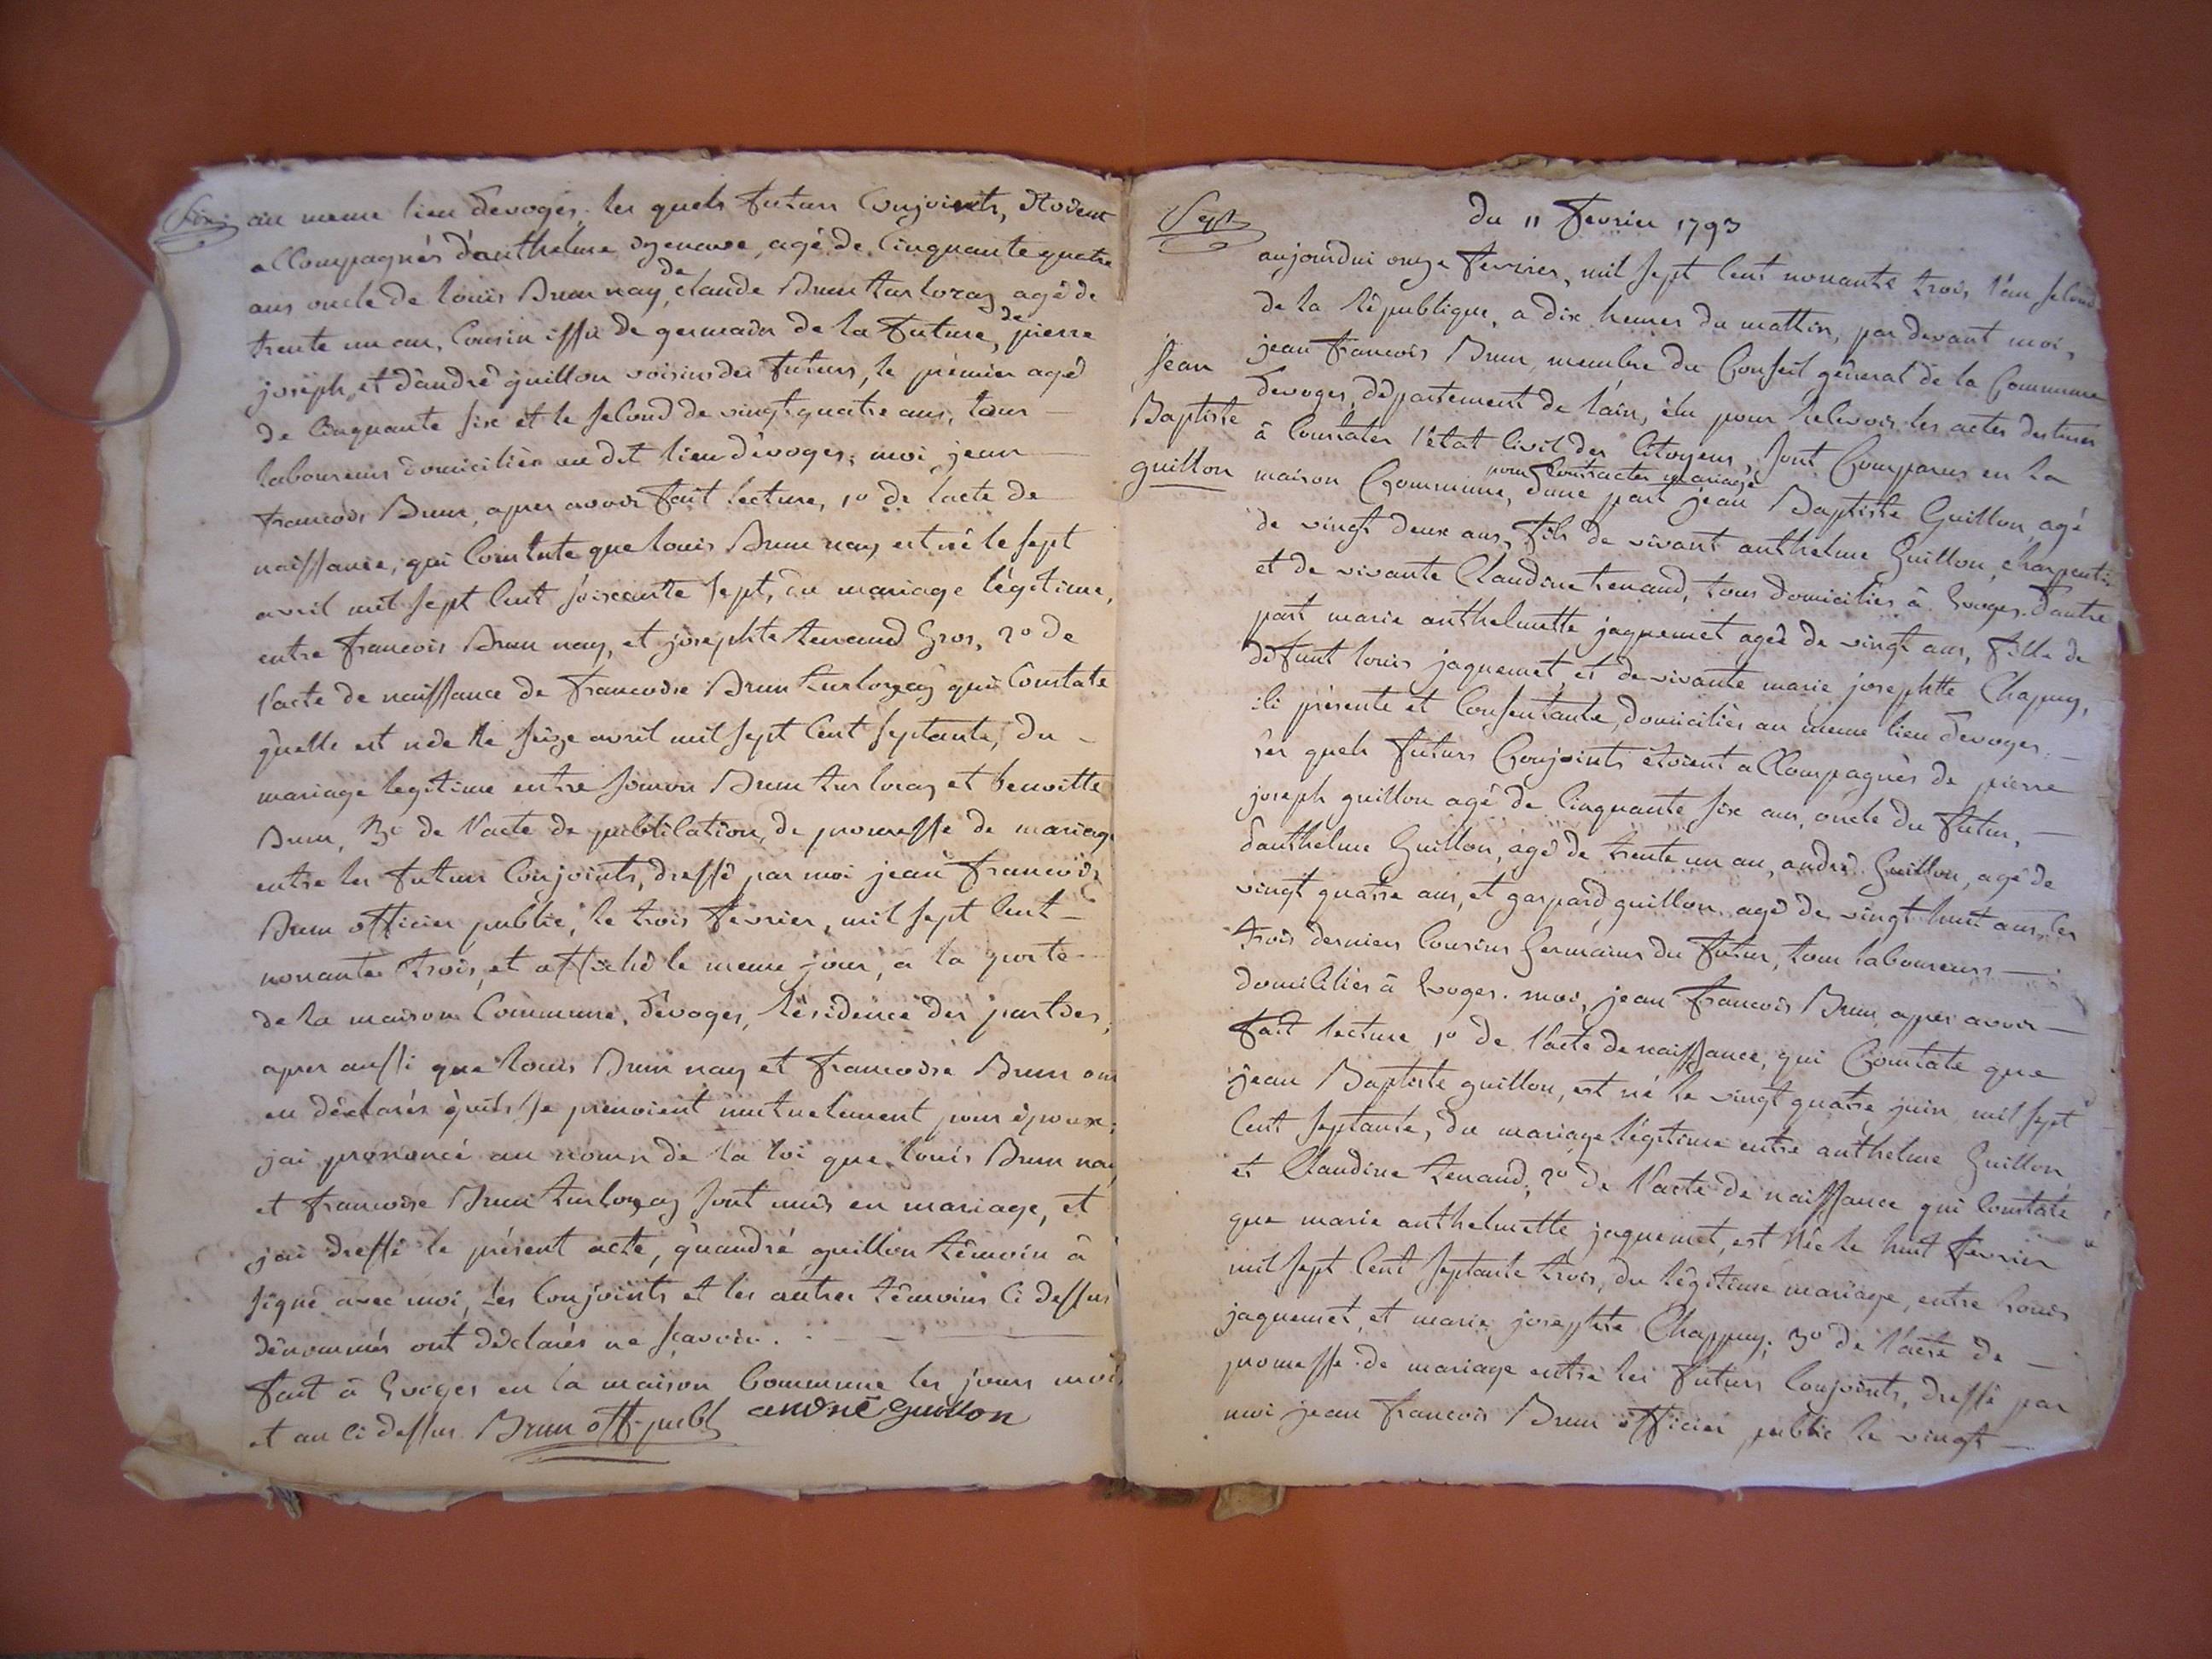 Six
au meme lieu d'evoges. les quels futurs Conjoints, étoient
accompagnés d'anthelme agé de Cinquante quatre
ans oncle de louis Brun nay, de claude Brun turloray agé de
trente un an, Cousin issu de germain de la future, de pierre
joseph, et d'andré guillon voisins des futurs, le prémier agé
de Cinquante six et le second de vingt quatre ans, tous
laboureurs domiciliés au dit lieu d'évoges, moi jean
francois Brun, apres avoir fait lecture, 1º de lacte de
naissance, qui Constate que louis Brun nay est né le sept
avril mil sept Cent soixante sept, du mariage légitime,
entre francois Brun nay, et josephte tenand Gros, 2º de
l'acte de naissance de francoise Brun turloray qui Constate
qu'elle est née le seize avril mil sept Cent septante, du
mariage legitime entre simon Brun turloray et benoitte
Brun, 3º de l'acte de publication de promesse de mariage
entre les futurs Conjoints, dressé par moi jean francois
Brun officier public, le trois fevrier, mil sept Cent
nonante trois, et affiché le meme jour, a la porte
de la maison Commune, d'évoges, résidence des parties,
apres aussi que louis Brun nay et francoise Brun ont
eu déclarés qu'ils se prenoient mutuelement pour époux;
jai prononcé au nom de la loi que louis Brun nay
et francoise Brun turloray sont unis en mariage, et
jai dressé le présent acte, qu'andré guillon témoin à
signé avec moi, les Conjoints et les autres témoins Ci dessus
dénommés ont déclarés ne scavoir.
fait à Evoges en la maison Commune les jours mois
et an Ci dessus Brun off. publ andré guillon
Sept
du 11 fevrier 1793
aujourdui onze fevrier, mil sept Cent nonante trois, l'an second
de la république, a dix heures du mattin, par devant moi,
jean francois Brun, membre du Conseil géneral de la Commune
d'evoges, département de l'ain, élu pour recevoir les actes destinés
à Constater l'état Civil des Citoyens, sont Comparus en la
pour Contracter mariage
maison Commune, d'une part jean Baptiste Guillon agé
Jean
Baptiste
guillon
de vingt deux ans, fils de vivant anthelme Guillon, charpentier
et de vivante Claudine tenand, tous domiciliés à Evoges. d'autre
part marie anthelmette jaquemet agée de vingt ans, fille de
défunt louis jaquemet, et de vivante marie josephtte Chapuy,
ici présente et Consentante, domiciliés au meme lieu d'evoges.
les quels futurs Conjoints étoient accompagnés de pierre
joseph guillon agé de Cinquante six ans, oncle du futur,
d'anthelme Guillon, agé de trente un an, andré Guillon, agé de
vingt quatre ans, et gaspard guillon agé de vingt huit ans, les
trois derniers Cousins Germains du futur, tous laboureurs
domiciliés à Evoges. moi, jean francois Brun, apres avoir
fait lecture 1º de l'acte de naissance, qui Constate que
jean Baptiste guillon, est né le vingt quatre juin mil sept
Cent septante, du mariage légitime entre anthelme Guillon
et Claudine tenand, 2º de l'acte de naissance qui Constate
que marie anthelmette jaquemet, est Née le huit fevrier
mil sept Cent septante trois, du légitime mariage, entre Louis
jaquemet, et marie josephte Chappuy; 3º de l'acte de
promesse de mariage entre les futurs Conjoints, dressé par
moi jean francois Brun officier public le vingt